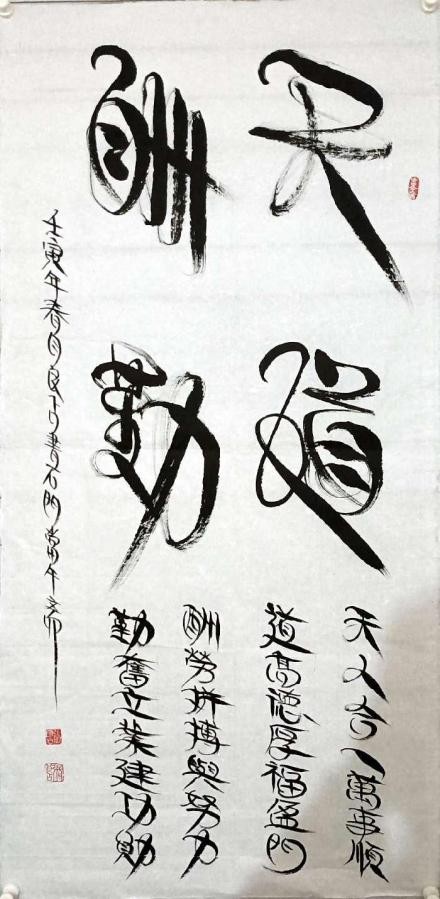 天道
酬勤
天人合一萬事順
道高德厚福盈門
酬勞拼搏與努力
勤奮立業建功勛
壬寅年春月良子書石門